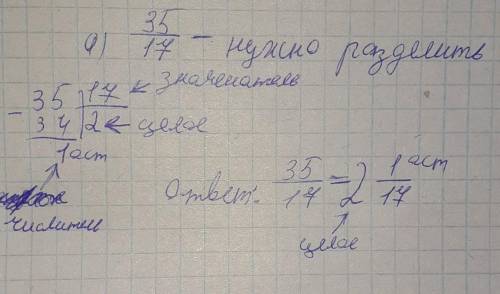 а) 35/17 - нужно разделить
- 35 | 17 ← значенатель
34 | 2 ← целое
1 ост
числитель
Ответ: 35/17 = 2 1/17 ост
целое